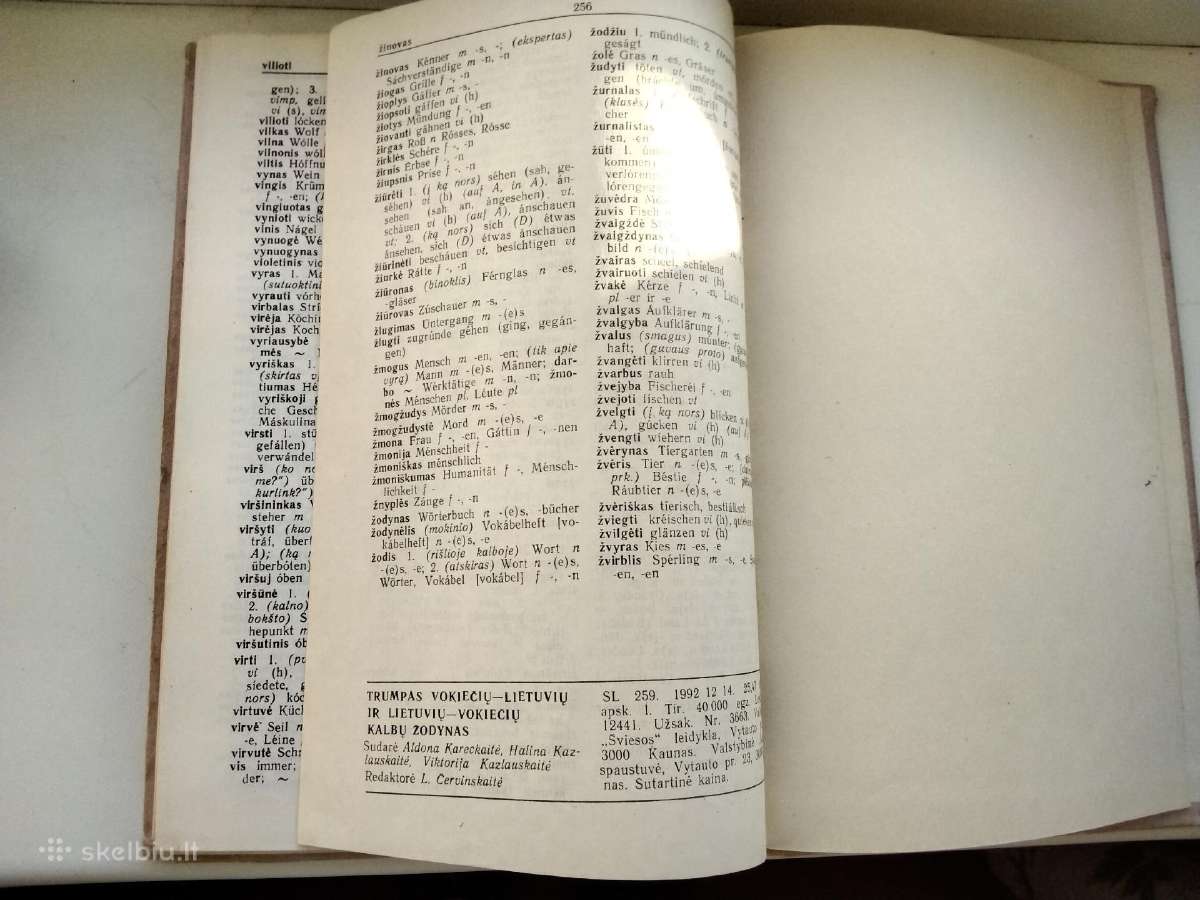 vilioti
gen); 3.
vimp. geli
vi (s), vim
vilioti lócken
vilkas Wolf
vilna Wólle
vilnonis wóll
viltis Hóffnu
vynas Wein
vingis Krüm
f -, -en;
vingiuotas
vynioti wick
vinis Nágel
vynuogė Wé
vynuogynas
violetinis vio
vyras 1. Ma
(sutuoktini
vyrauti vórh
virbalas Stri
virėja Köchin
virėjas Koch
vyriausybė
mės ~
vyriškas 1.
(skirtas
tiumas Hé
vyriškoji g
che Gesch
Máskulina
virsti 1. stü
gefállen)
verwándel
virš (ko no
me?") üb
kurlink?")
viršininkas
steher m
viršyti (kuo
tráf, überf
A); (ką
überbóten)
viršuj óben
viršūnė 1. (
2. (kalno)
bokšto) S
hepunkt m
viršutinis ób
virti 1. (pu
vi (h),
siedete, g
nors) kóc
virtuvė Küch
virvė Seil n
-e, Léine
virvutė Schn
vis immer;
der; ~
256
žinovas
žinovas Kénner m -s, -; (ekspertas)
Sáchverständige m -n, -n
žiogas Grille f -, -n
žioplys Gáffer m -s, -
žiopsoti gáffen vi (h)
žiotys Mündung f -, -en
žiovauti gähnen vi (h)
žirgas Roß n Rósses, Rósse
žirklės Schére f -, -n
žirnis Erbse f -, -n
žiupsnis Prise f -, -n
žiūrėti 1. (į ką nors) séhen (sah, ge-
séhen) vi (h) (auf A, in A), án-
sehen (sah an, ángesehen) vt,
scháuen vi (h) (auf A), ánschauen
vt; 2. (ką nors) sich (D) étwas
ánsehen, sich (D) étwas ánschauen
žiūrinėti bescháuen vt, besíchtigen vt
žiurkė Rátte f -, -n
žiūronas (binoklis) Férnglas n -es,
-gläser
žiūrovas Zúschauer m -s, -
žlugimas Úntergang m -(e)s
žlugti zugrúnde géhen (ging, gegán-
gen)
žmogus Mensch m -en, -en; (tik apie
vyrą) Mann m -(e)s, Männer; dar-
bo ~ Wérktätige m -n, -n; žmo-
nės Ménschen pl, Léute pl
žmogžudys Mörder m -s, -
žmogžudystė Mord m -(e)s, -e
žmona Frau f -, -en, Gáttin f -, -nen
žmonija Ménschheit f -
žmoniškas ménschlich
žmoniškumas Humanität f -, Ménsch-
lichkeit f -
žnyplės Zánge f -, -n
žodynas Wörterbuch n -(e)s, -bücher
žodynėlis (mokinio) Vokábelheft [vo-
kábelheft] n -(e)s, -e
žodis 1. (rišlioje kalboje) Wort n
-(e)s, -e; 2. (atskiras) Wort n -(e)s,
Wörter, Vokábel [vokábel] f -, -n
žodžiu 1. mündlich; 2.
geságt
žolė Gras n -es, Gräser
žudyti töten vt, mórden
gen
žurnalas
(klasės)
cher
žurnalistas
-en, -en
žūti 1.
kommen)
verlóren
lórengeg
žuvėdra
žuvis Fisch
žvaigždė
žvaigždynas
bild n -(e)
žvairas scheel, schíelend
žvairuoti schíelen vi (h)
žvakė Kérze f -, -n, Licht
pl -er ir -e
žvalgas Aufklärer m -s, -
žvalgyba Aufklärung f -, -en
žvalus (smagus) múnter,
haft; (guvaus proto)
žvangėti klírren vi (h)
žvarbus rauh
žvejyba Fischeréi f -, -en
žvejoti fischen vt
žvelgti (į ką nors) blícken
A), gúcken vi (h) (auf
žvengti wíehern vi (h)
žvėrynas Tíergarten m -s,
žvėris Tier n -(e)s, -e;
prk.) Béstie f -, -n;
Ráubtier n -(e)s, -e
žvėriškas tíerisch, bestiálisch
žviegti kréischen vi (h),
žvilgėti glänzen vi (h)
žvyras Kies m -es, -e
žvirblis Spérling m -s, -e
-en, -en
TRUMPAS VOKIEČIŲ—LIETUVIŲ
IR LIETUVIŲ—VOKIEČIŲ
KALBŲ ŽODYNAS
Sudarė Aldona Kareckaitė, Halina Kaz-
lauskaitė, Viktorija Kazlauskaitė
Redaktorė L. Červinskaitė
SL 259. 1992 12 14. 25,47
apsk. l. Tir. 40 000 egz.
12441. Užsak. Nr. 3663.
„Šviesos" leidykla, Vytauto
3000 Kaunas. Valstybinė
spaustuvė, Vytauto pr. 23,
nas. Sutartinė kaina.
skelbiu.lt